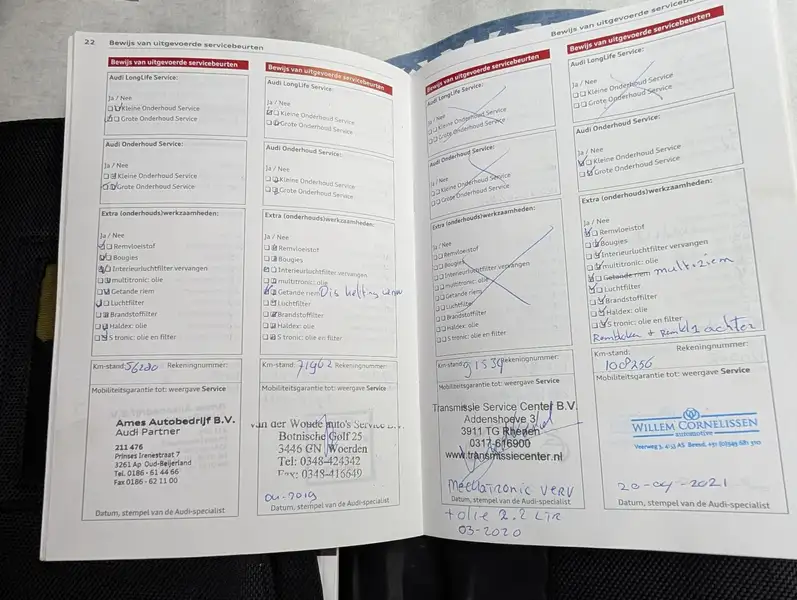 22 Bewijs van uitgevoerde servicebeurten
Bewijs van uitgevoerde servicebeurten
Audi LongLife Service:
Ja / Nee
Kleine Onderhoud Service
Grote Onderhoud Service
Audi Onderhoud Service:
Ja / Nee
Kleine Onderhoud Service
Grote Onderhoud Service
Extra (onderhouds)werkzaamheden:
Ja / Nee
Remvloeistof
Bougies
Interieurluchtfilter vervangen
multitronic: olie
Getande riem
Luchtfilter
Brandstoffilter
Haldex: olie
S tronic: olie en filter
Km-stand: 56280 Rekeningnummer:
Mobiliteitsgarantie tot: weergave Service
Ames Autobedrijf B.V.
Audi Partner
211 476
Prinses Irenestraat 7
3261 Ap Oud-Beijerland
Tel. 0186 - 61 44 66
Fax 0186 - 62 11 00
Datum, stempel van de Audi-specialist
Bewijs van uitgevoerde servicebeurten
Audi LongLife Service:
Ja / Nee
Kleine Onderhoud Service
Grote Onderhoud Service
Audi Onderhoud Service:
Ja / Nee
Kleine Onderhoud Service
Grote Onderhoud Service
Extra (onderhouds)werkzaamheden:
Ja / Nee
Remvloeistof
Bougies
Interieurluchtfilter vervangen
multitronic: olie
Getande riem Dis ketting
Luchtfilter
Brandstoffilter
Haldex: olie
S tronic: olie en filter
Km-stand: 71962 Rekeningnummer:
Mobiliteitsgarantie tot: weergave Service
van der Woude Auto's Service B.V.
Botnische Golf 25
3446 GN Woerden
Tel: 0348-424342
Fax: 0348-416649
04-2019
Datum, stempel van de Audi-specialist
Bewijs van uitgevoerde servicebeurten
Bewijs van uitgevoerde servicebeurten
Audi LongLife Service:
Ja / Nee
Kleine Onderhoud Service
Grote Onderhoud Service
Audi Onderhoud Service:
Ja / Nee
Kleine Onderhoud Service
Grote Onderhoud Service
Extra (onderhouds)werkzaamheden:
Ja / Nee
Remvloeistof
Bougies
Interieurluchtfilter vervangen
multitronic: olie
Getande riem
Luchtfilter
Brandstoffilter
Haldex: olie
S tronic: olie en filter
Km-stand: 91534 Rekeningnummer:
Mobiliteitsgarantie tot: weergave Service
Transmissie Service Center B.V.
Addenshoeve 3
3911 TG Rhenen
0317-616900
www.transmissiecenter.nl
mechatronic verv
Datum, stempel van de Audi-specialist
+ olie 2.2 LTR
03-2020
Bewijs van uitgevoerde servicebeurten
Audi LongLife Service:
Ja / Nee
Kleine Onderhoud Service
Grote Onderhoud Service
Audi Onderhoud Service:
Ja / Nee
Kleine Onderhoud Service
Grote Onderhoud Service
Extra (onderhouds)werkzaamheden:
Ja / Nee
Remvloeistof
Bougies
Interieurluchtfilter vervangen
multitronic: olie
Getande riem multiriem
Luchtfilter
Brandstoffilter
Haldex: olie
S tronic: olie en filter
achter
Km-stand: Rekeningnummer:
108256
Mobiliteitsgarantie tot: weergave Service
WILLEM CORNELISSEN
automotive
20-04-2021
Datum, stempel van de Audi-specialist